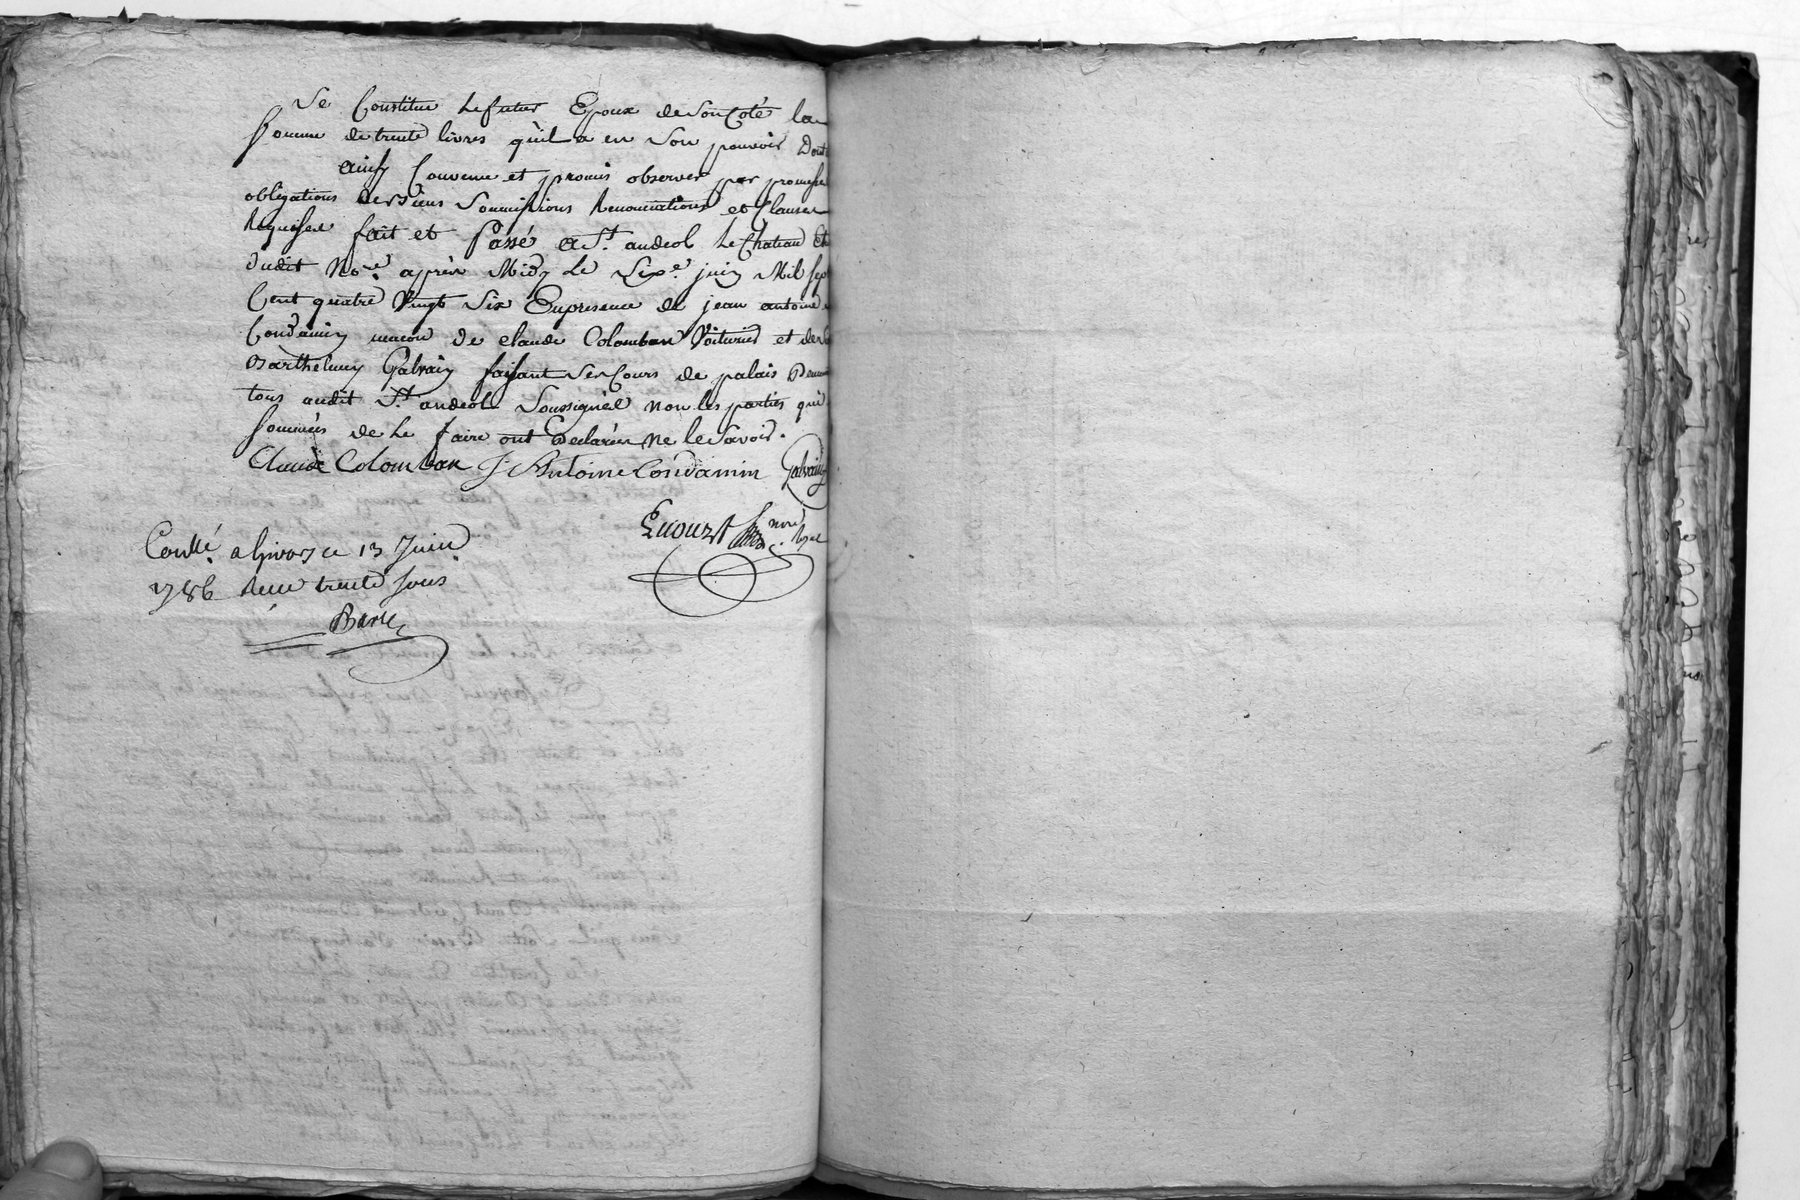 Se Constitue le futur Epoux de Son Coté la
Somme de trente livres qu'il a en Son pouvoir Dont
ainsy Convenu et promis observer par promesse
obligations de biens Soumissions Renonciations et Clauses
Requises fait et Passé a St. andeol le Chateau Etude
dudit No.re après Midy Le Six.e juin Mil Sept
Cent quatre Vingt Six En presence de jean antoine
Condamin macon de claude Colomban Voiturier et de
Barthelemy Galvain faisant Ses Cours de palais Demeurant
tous audit St. andeol Soussignés non les parties qui
Sommées de Le faire ont Declarées Ne le Savoir.
Claude Colomban J. Antoine Condamin Galvain
not.re Royal
Conllé. a Givors ce 13 Juin
1786 Reçu trente Sous.